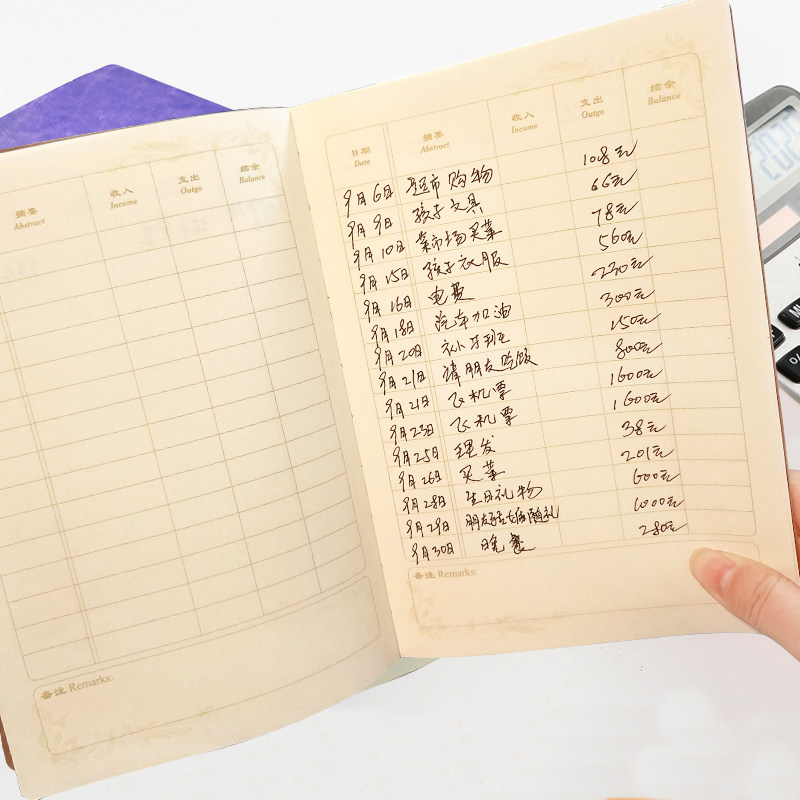 摘要 收入 支出 结余
Abstract Income Outgo Balance
备注 Remarks:
日期 摘要 收入 支出 结余
Date Abstract Income Outgo Balance
9月6日 超市购物 108元
9月9日 孩子文具 66元
9月10日 菜市场买菜 78元
9月15日 孩子衣服 560元
9月16日 电费 230元
9月18日 汽车加油 300元
9月20日 补牙班 150元
9月21日 请朋友吃饭 800元
9月21日 飞机票 1600元
9月23日 飞机票 1600元
9月25日 理发 38元
9月26日 买菜 201元
9月28日 生日礼物 600元
9月29日 朋友结婚随礼 1000元
9月30日 晚餐 280元
备注 Remarks: